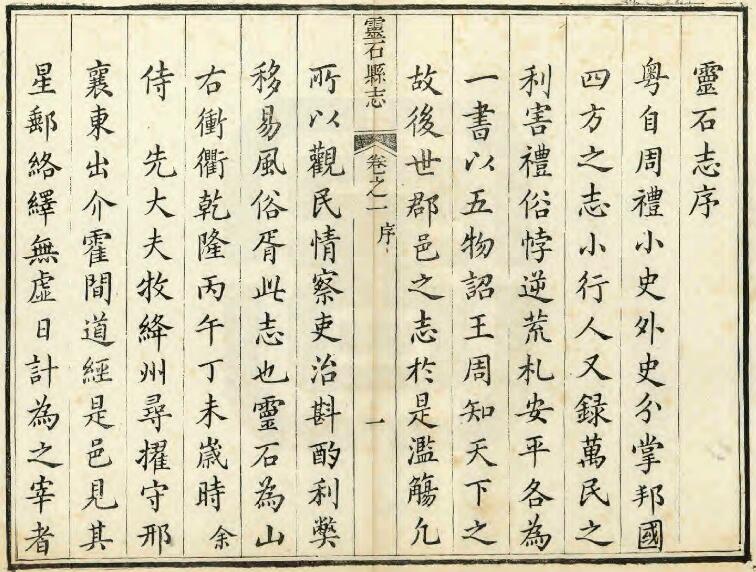 靈石志序
粵自周禮小史外史分掌邦國
四方之志小行人又錄萬民之
利害禮俗悖逆荒札安平各為
一書以五物詔王周知天下之
故後世郡邑之志於是濫觴凢
靈石縣志
卷之一 序
一
所以觀民情察吏治斟酌利獘
移易風俗胥此志也靈石為山
右衝衢乾隆丙午丁未歲時余
侍 先大夫牧絳州尋擢守邢
襄東出介霍間道經是邑見其
星郵絡繹無虛日計為之宰者